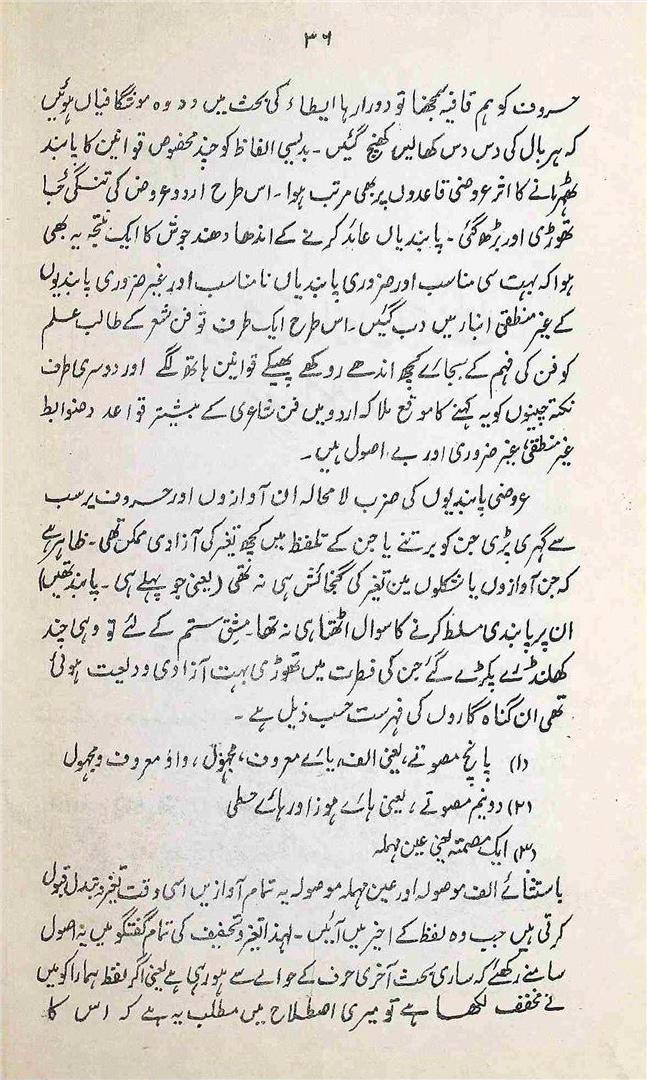 ۳۶
حروف کو ہم قافیہ سمجھنا تو دور رہا ایطاء کی بحث میں دہ وہ موشگافیاں ہوئیں
کہ ہر بال کی دس دس کھالیں کھنچ گئیں ۔ بدیسی الفاظ کو چند مخصوص قوانین کا پابند
ٹھہرانے کا اثر عروضی قاعدوں پر بھی مرتب ہوا ۔ اس طرح اردو عروض کی تنگی خاصی
تھوڑی اور بڑھ گئی ۔ پابندیاں عائد کرنے کے اندھا دھند جوش کا ایک نتیجہ یہ بھی
ہوا کہ بہت سی مناسب اور ضروری پابندیاں نامناسب اور غیر ضروری پابندیوں
کے غیر منطقی انبار میں دب گئیں ۔ اس طرح ایک طرف تو فن شعر کے طالب علم
کو فن کی فہم کے بجائے کچھ اندھے روکھے پھیکے قوانین ہاتھ لگے اور دوسری طرف
نکتہ چینوں کو یہ کہنے کا موقع ملا کہ اردو میں فن شاعری کے بیشتر قواعد و ضوابط
غیر منطقی، غیر ضروری اور بے اصول ہیں ۔
عروضی پابندیوں کی ضرب لامحالہ ان آوازوں اور حروف پر سب
سے گہری پڑی جن کو برتنے یا جن کے تلفظ میں کچھ تغیر کی آزادی ممکن تھی ۔ ظاہر ہے
کہ جن آوازوں یا شکلوں میں تغیر کی گنجائش ہی نہ تھی (یعنی جو پہلے ہی ۔ پابند تھیں)
ان پر پابندی مسلط کرنے کا سوال اٹھتا ہی نہ تھا ۔ مشق ستم کے لئے تو وہی چند
کھلنڈرے پکڑے گئے جن کی فطرت میں تھوڑی بہت آزادی ودیعت ہوئی
تھی ان گناہ گاروں کی فہرست حسب ذیل ہے ۔
(۱) پانچ مصوتے، یعنی الف، یائے معروف، مجہول، واؤ معروف و مجہول
(۲) دو نیم مصوتے، یعنی ہائے ہوز اور ہائے حطی
(۳) ایک مصمتہ یعنی عین مہملہ
باستثنائے الف موصولہ اور عین مہملہ موصولہ یہ تمام آوازیں اسی وقت تغیر و تبدل قبول
کرتی ہیں جب وہ لفظ کے اخیر میں آئیں ۔ لہذا تغیر و تخفیف کی تمام گفتگو میں یہ اصول
سامنے رکھئے کہ ساری بحث آخری حرف کے حوالے سے ہو رہی ہے یعنی اگر لفظ ہمارا کو میں
نے مخفف لکھا ہے تو میری اصطلاح میں مطلب یہ ہے کہ اس کا